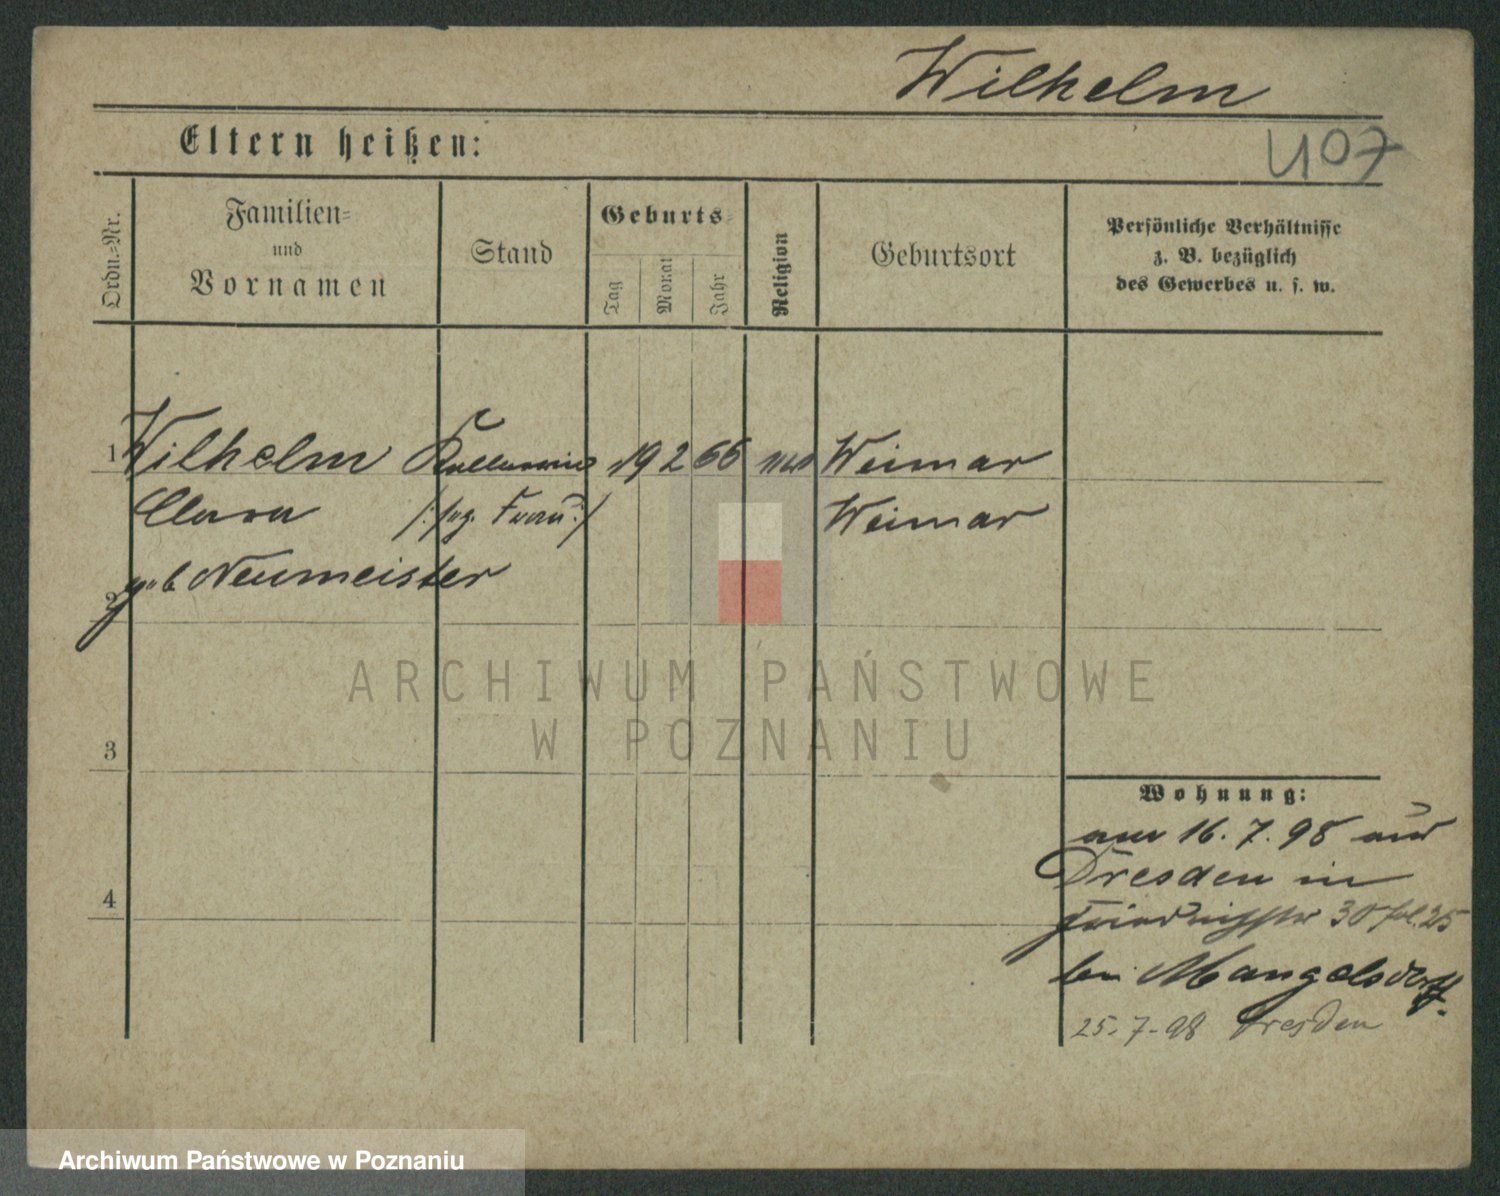 Wilhelm
Eltern heißen:
407
Ordn.-Nr.
Familien-
und
Vornamen
Stand
Geburts-
Tag
Monat
Jahr
Religion
Geburtsort
Persönliche Verhältnisse
z. B. bezüglich
des Gewerbes u. s. w.
1 Wilhelm 19 2 66 Weimar
Clara Frau Weimar
2 geb Neumeister
3
4
Wohnung:
am 16. 7. 98 aus
Dresden in
Friedrichstr 30
bei Mangelsdorff.
25. 7. 98 Dresden
ARCHIWUM PAŃSTWOWE
W POZNANIU
Archiwum Państwowe w Poznaniu